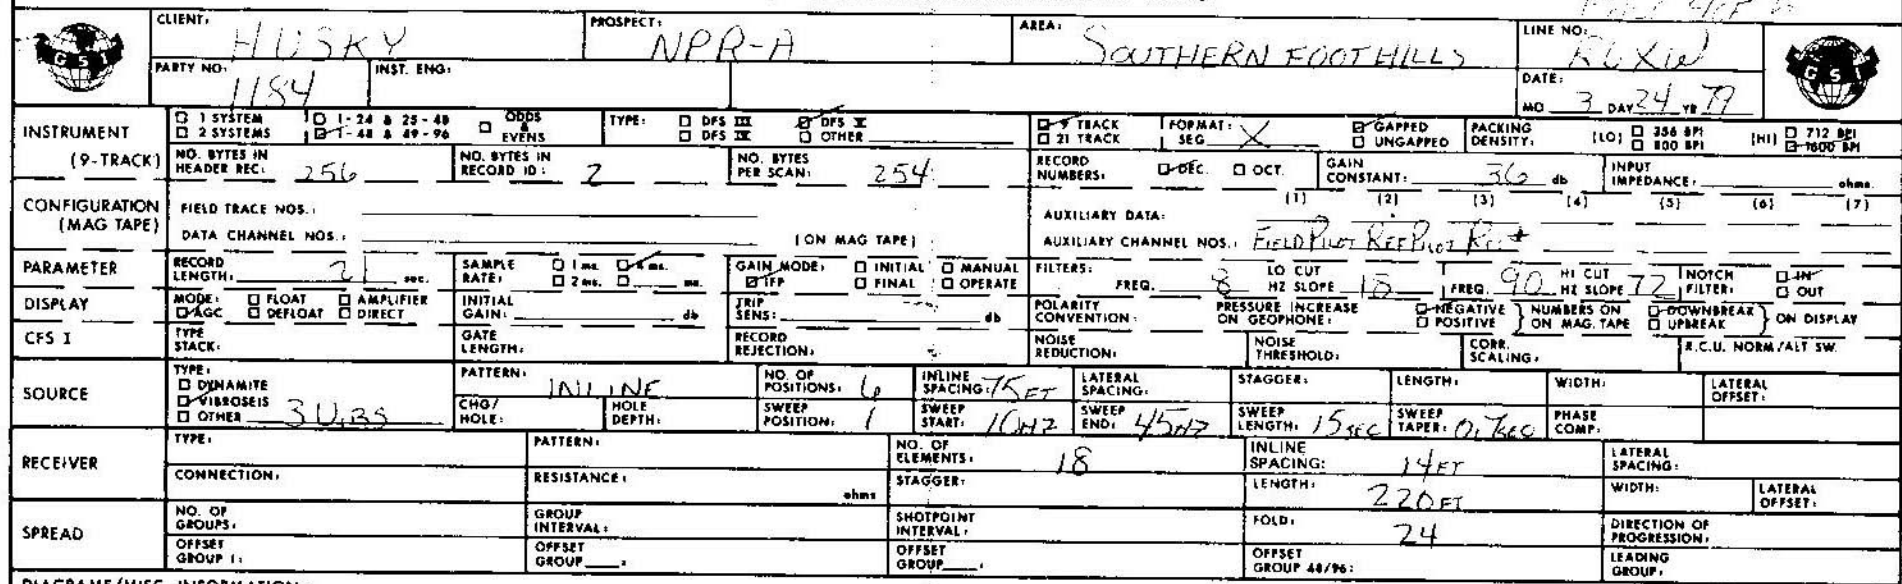 CLIENT: HUSKY PROSPECT: NPR-A AREA: SOUTHERN FOOTHILLS LINE NO:
GSI GSI
PARTY NO: 1184 INST. ENG: DATE: MO 3 DAY 24 YR 79
INSTRUMENT (9-TRACK)
1 SYSTEM 1-24 & 25-48 ODDS & EVENS TYPE: DFS III DFS V 9 TRACK FORMAT: SEG X GAPPED PACKING DENSITY: (LO) 356 BPI (HI) 712 BPI
2 SYSTEMS 1-48 & 49-96 DFS IV OTHER 21 TRACK UNGAPPED 800 BPI 1600 BPI
NO. BYTES IN HEADER REC: 256 NO. BYTES IN RECORD ID: 2 NO. BYTES PER SCAN: 254 RECORD NUMBERS: DEC. OCT. GAIN CONSTANT: 36 db INPUT IMPEDANCE: ohms.
CONFIGURATION (MAG TAPE)
FIELD TRACE NOS.: AUXILIARY DATA: (1) (2) (3) (4) (5) (6) (7)
DATA CHANNEL NOS.: (ON MAG TAPE) AUXILIARY CHANNEL NOS.: FIELD PILOT REF PILOT
PARAMETER RECORD LENGTH: 21 sec. SAMPLE RATE: 1 ms. 4 ms. 2 ms. ms. GAIN MODE: INITIAL MANUAL IFP FINAL OPERATE FILTERS: FREQ. 8 LO CUT HZ SLOPE 18 FREQ. 90 HI CUT HZ SLOPE 72 NOTCH FILTER: IN OUT
DISPLAY MODE: FLOAT AMPLIFIER AGC DEFLOAT DIRECT INITIAL GAIN: db TRIP SENS: db POLARITY CONVENTION: PRESSURE INCREASE ON GEOPHONE: NEGATIVE POSITIVE NUMBERS ON ON MAG. TAPE DOWNBREAK UPBREAK ON DISPLAY
CFS I TYPE STACK: GATE LENGTH: RECORD REJECTION: NOISE REDUCTION: NOISE THRESHOLD: CORR. SCALING: R.C.U. NORM/ALT SW.
SOURCE TYPE: DYNAMITE VIBROSEIS OTHER 3 VIBS
PATTERN: INLINE NO. OF POSITIONS: 6 INLINE SPACING: 75 FT LATERAL SPACING: STAGGER: LENGTH: WIDTH: LATERAL OFFSET:
CHG/HOLE: HOLE DEPTH: SWEEP POSITION: 1 SWEEP START: 10HZ SWEEP END: 45HZ SWEEP LENGTH: 15 SEC SWEEP TAPER: 0.7SEC PHASE COMP:
RECEIVER TYPE: PATTERN: NO. OF ELEMENTS: 18 INLINE SPACING: 14 FT LATERAL SPACING:
CONNECTION: RESISTANCE: ohms STAGGER: LENGTH: 220 FT WIDTH: LATERAL OFFSET:
SPREAD NO. OF GROUPS: GROUP INTERVAL: SHOTPOINT INTERVAL: FOLD: 24 DIRECTION OF PROGRESSION:
OFFSET GROUP 1: OFFSET GROUP : OFFSET GROUP : OFFSET GROUP 48/96: LEADING GROUP: